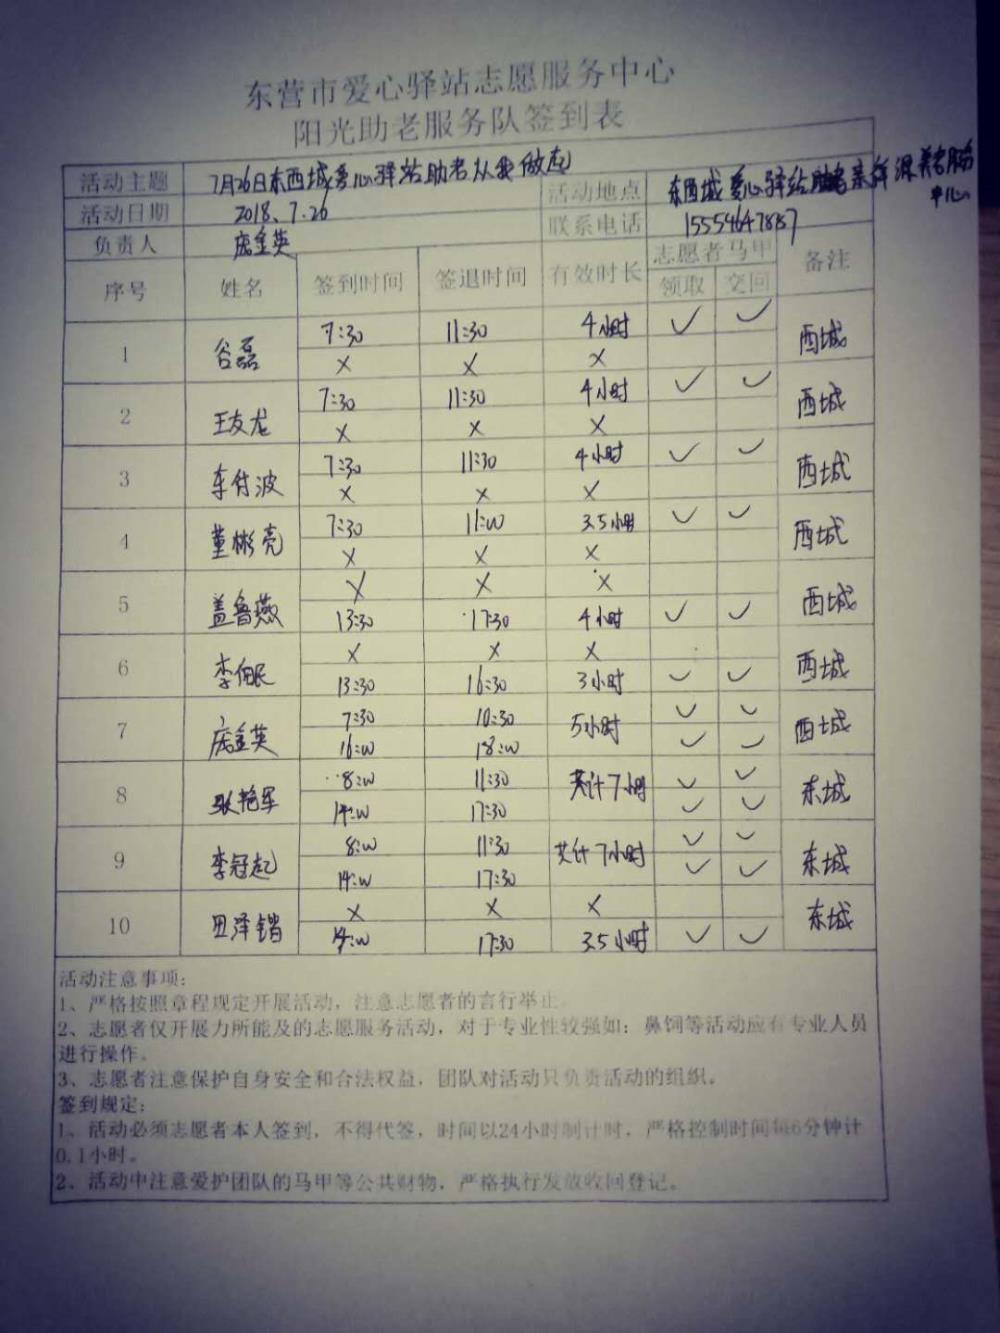 东营市爱心驿站志愿服务中心
阳光助老服务队签到表
活动主题 7月26日东西城爱心驿站助老从我做起 活动地点 东西城爱心驿站 养老服务
中心
活动日期 2018.7.26 联系电话 15554647887
负责人 庞金英
序号 姓名 签到时间 签退时间 有效时长 志愿者马甲 备注
领取 交回
1 谷磊 7:30 11:30 4小时 ✓ ✓ 西城
× × ×
2 王友龙 7:30 11:30 4小时 ✓ ✓ 西城
× × ×
3 车付波 7:30 11:30 4小时 ✓ ✓ 西城
× × ×
4 董彬亮 7:30 11:00 3.5小时 ✓ ✓ 西城
× × ×
5 盖鲁燕 × × × 西城
13:30 17:30 4小时 ✓ ✓
6 李佃民 × × × 西城
13:30 16:30 3小时 ✓ ✓
7 庞金英 7:30 10:30 5小时 ✓ ✓ 西城
16:00 18:00 ✓ ✓
8 耿艳军 8:00 11:30 共计7小时 ✓ ✓ 东城
14:00 17:30 ✓ ✓
9 李冠起 8:00 11:30 共计7小时 ✓ ✓ 东城
14:00 17:30 ✓ ✓
10 田泽锴 × × × 东城
14:00 17:30 3.5小时 ✓ ✓
活动注意事项：
1、严格按照章程规定开展活动，注意志愿者的言行举止。
2、志愿者仅开展力所能及的志愿服务活动，对于专业性较强如：鼻饲等活动应有专业人员
进行操作。
3、志愿者注意保护自身安全和合法权益，团队对活动只负责活动的组织。
签到规定：
1、活动必须志愿者本人签到，不得代签，时间以24小时制计时，严格控制时间每6分钟计
0.1小时。
2、活动中注意爱护团队的马甲等公共财物，严格执行发放收回登记。